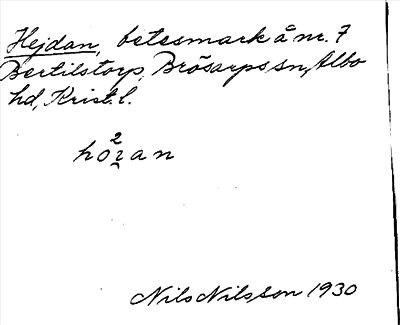 Hejdan, betesmark å nr. 7
Bertilstorp, Brösarps sn, Albo
hd, Krist. l.
2
hoʐan
Nils Nilsson 1930